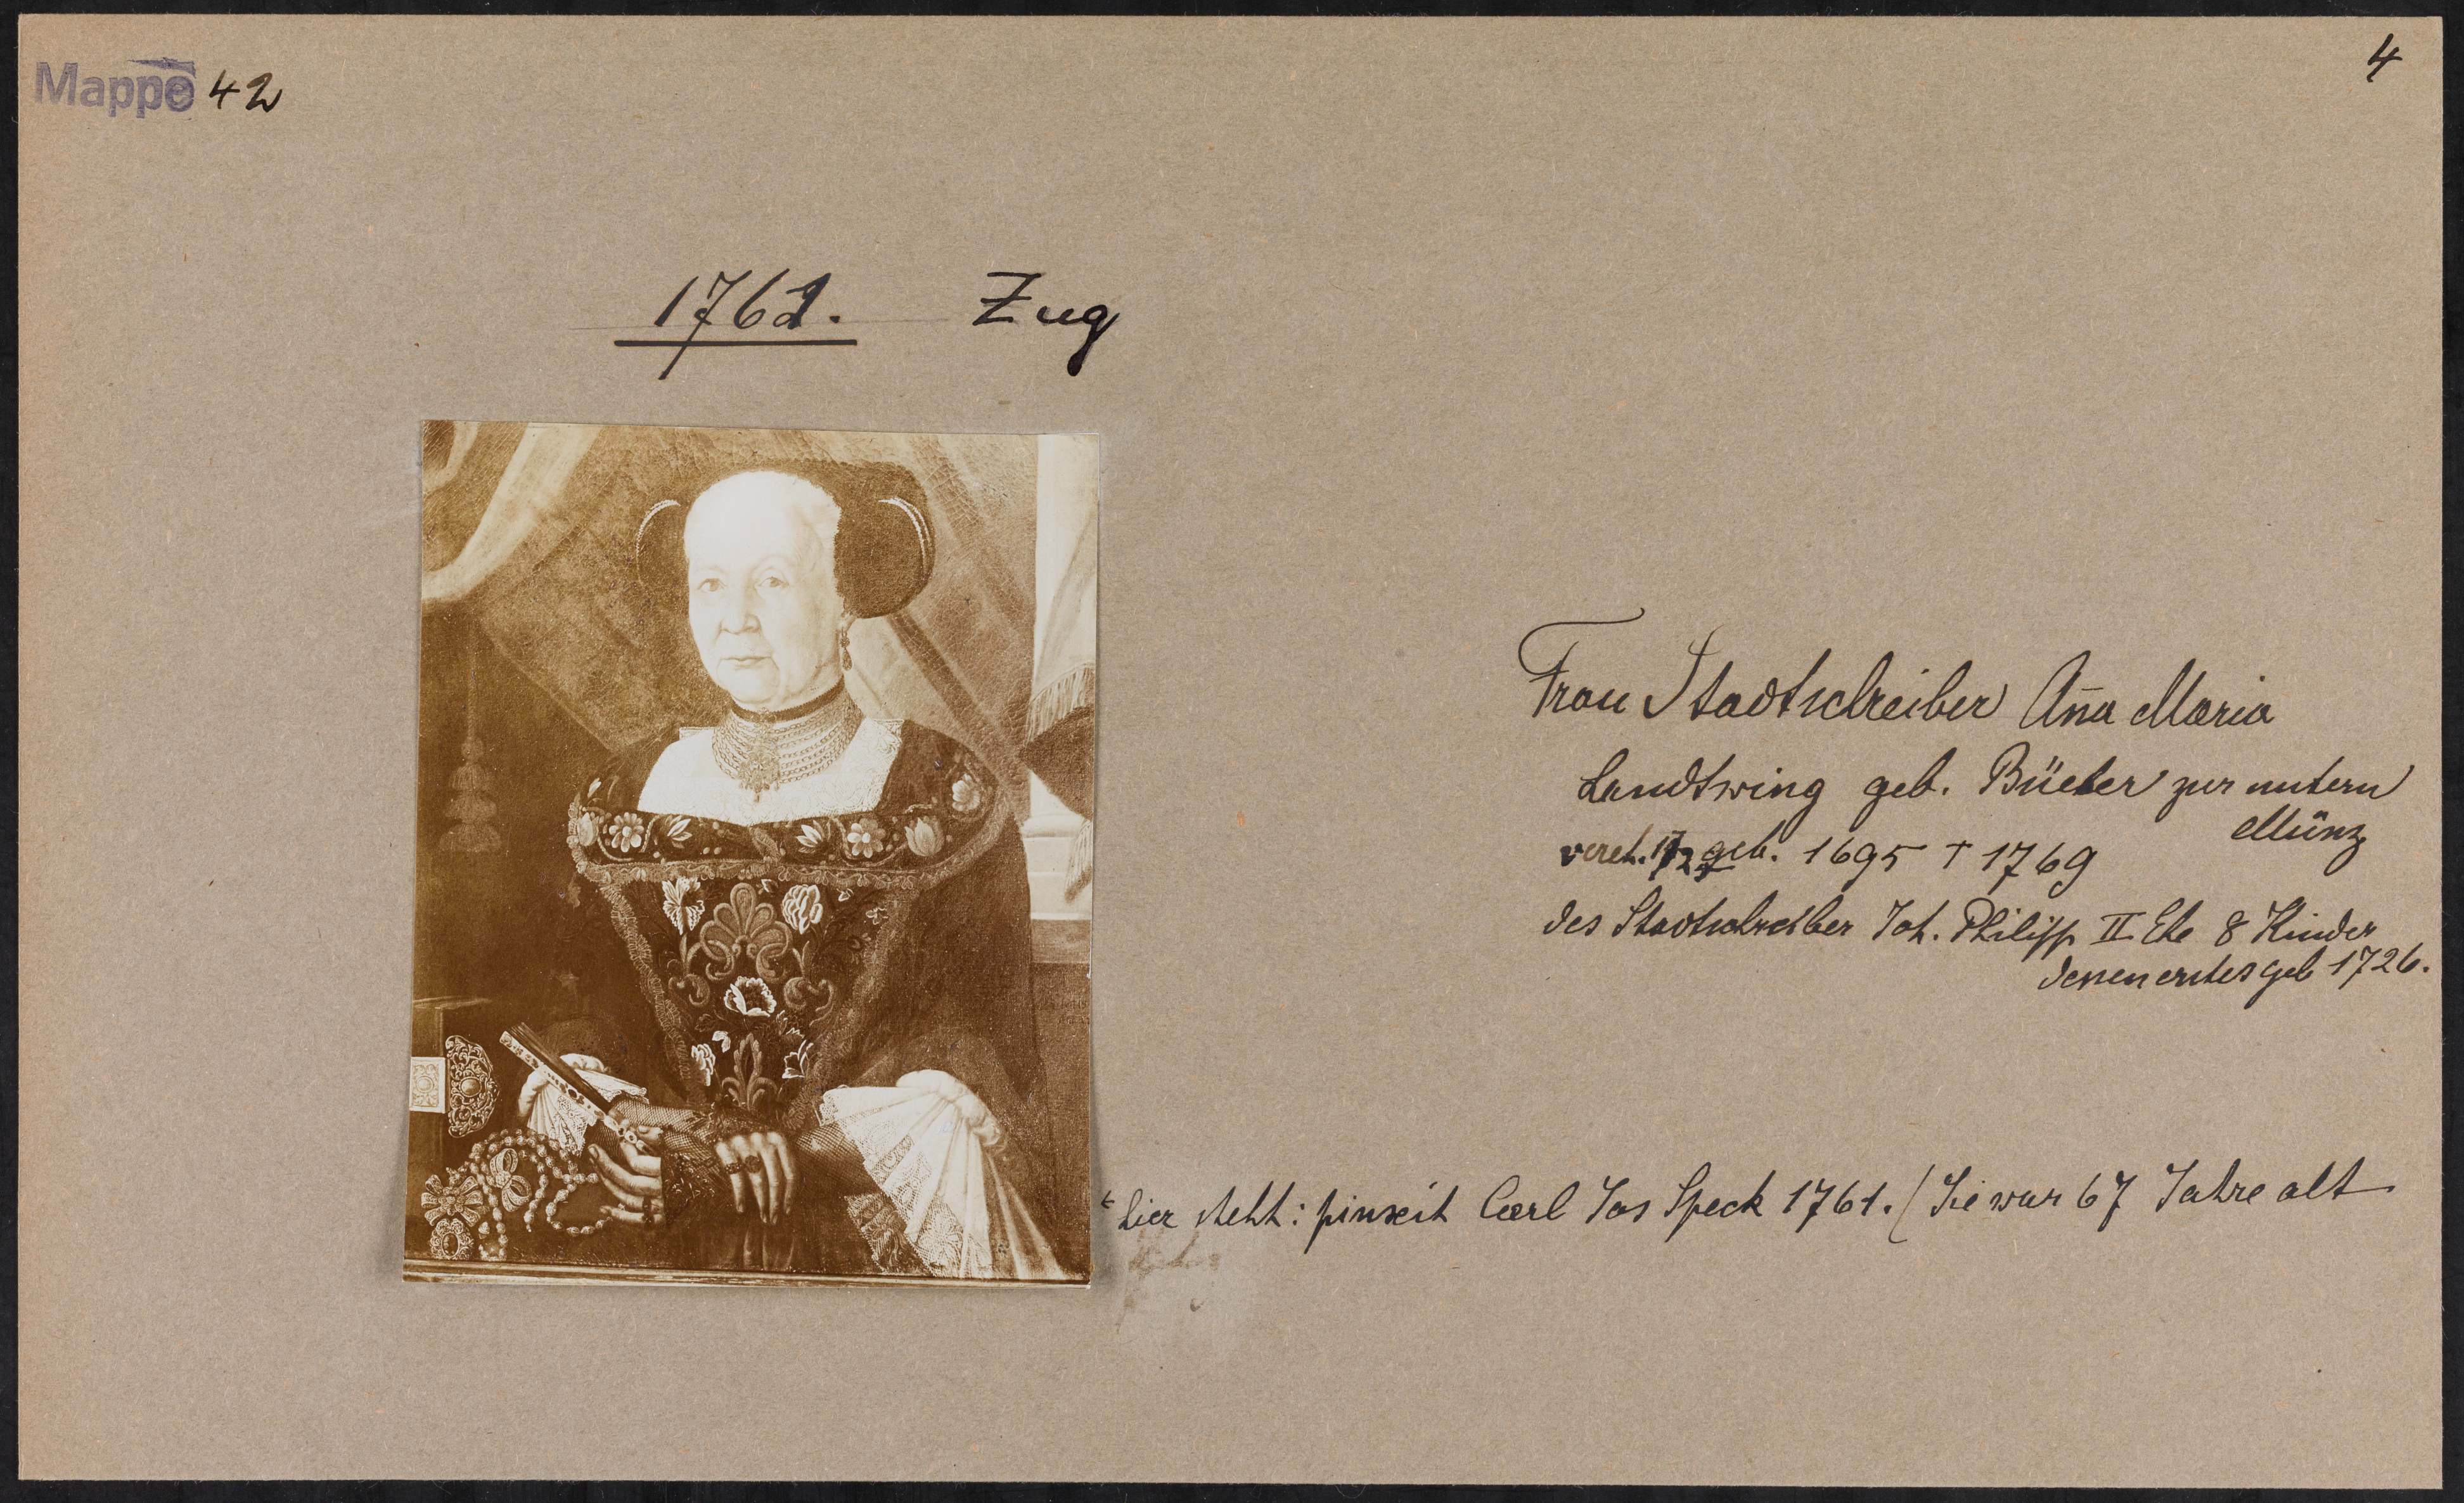 Mappe 42
4
1761. Zug
Frau Stadtschreiber Aña Maria
Landtwing geb. Büeler zur untern
Münz
vereh. 172 geb. 1695 † 1769
des Stadtschreiber Joh. Philipp II Ehe 8 Kinder
denen erstes geb 1726.
hier steht: pinxit Carl Jos Speck 1761. / Sie war 67 Jahre alt